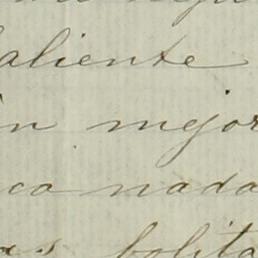 aliente
n mejor
ca nada
as bolita